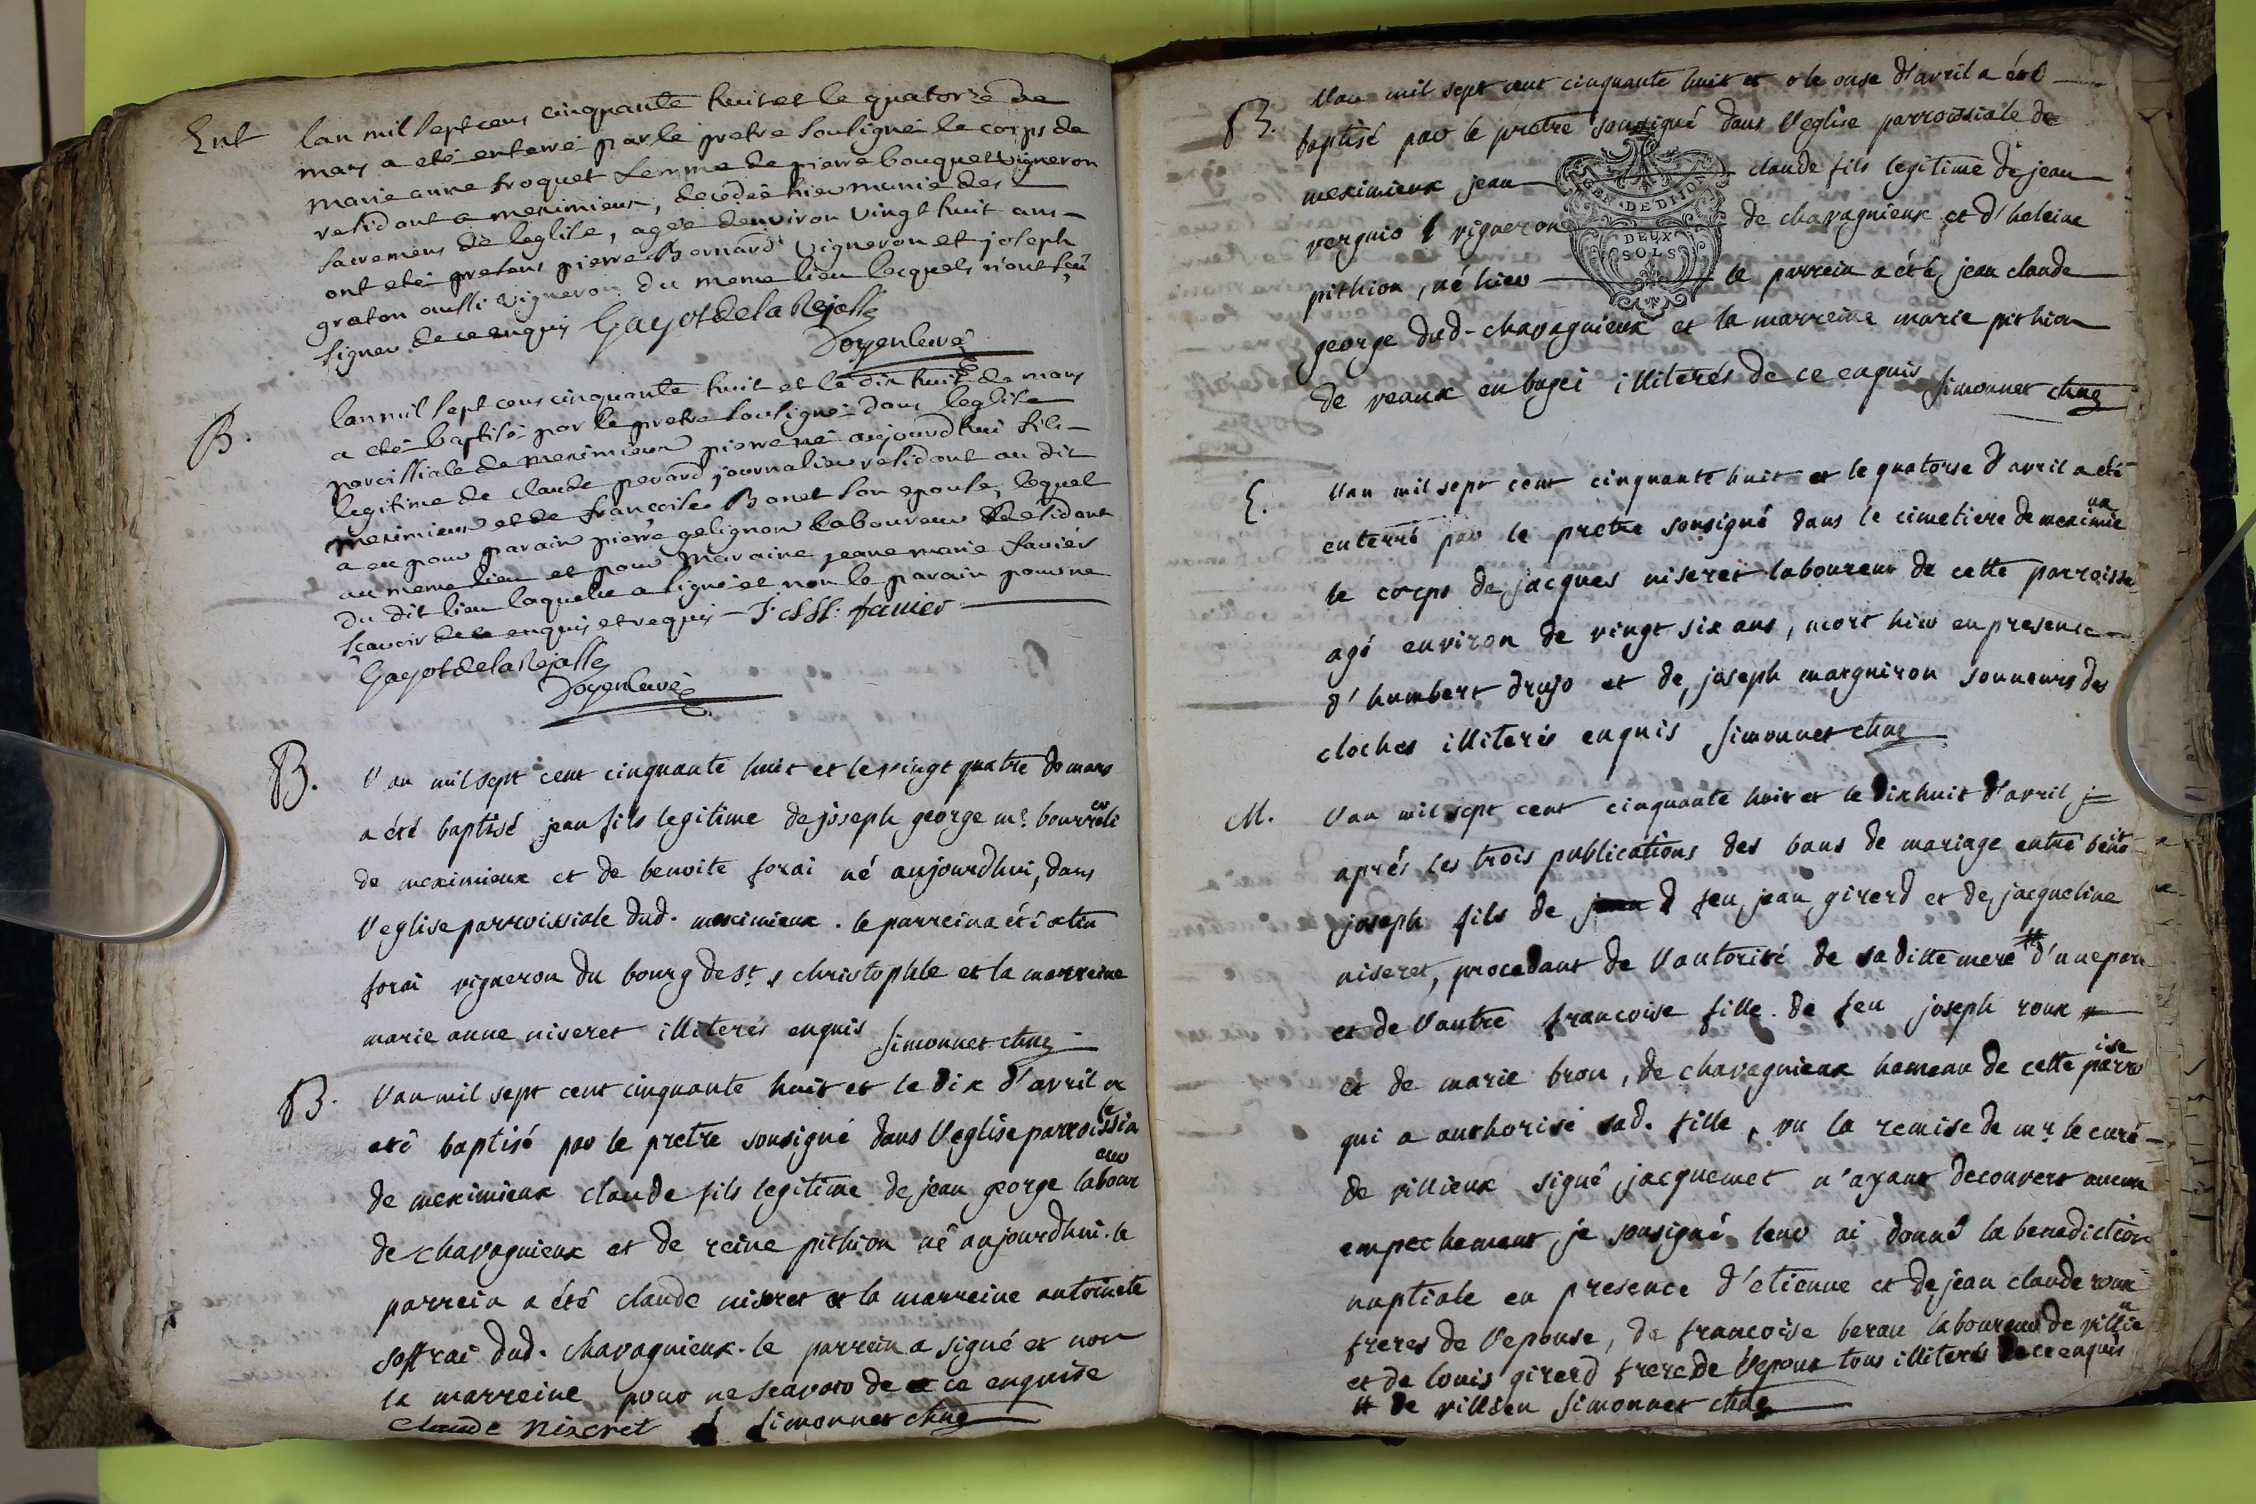 Ent
lan mil sept cens cinquante huit et le quatorze de
mars a eté enterré par le pretre soussigné le corps de
marie anne froquet femme de pierre bouquet vigneron
residant a meximieux, decedée hier munie des
sacremens de leglise, agée denviron vingt huit ans
ont eté presens pierre Bernard vigneron et joseph
graton aussi vigneron du meme lieu lesquels n'ont sçu
signer de ce enquis Gayot de la Rejasse
Doyen curé
B.
lan mil sept cens cinquante huit et le dix huit de mars
a eté baptisé par le pretre soussigné dans leglise
paroissiale de meximieux pierre né aujourdhui fils
legitime de claude perard journalier residant au dit
meximieux et de françoise Bonet son epouse, lequel
a eu pour parain pierre gelignon laboureur residant
au meme lieu et pour maraine jeane marie favier
du dit lieu laquelle a signé et non le parain pour ne
scavoir de ce enquis et requis favier
Gayot de la Rejasse
Doyen curé
B.
l'an mil sept cent cinquante huit et le vingt quatre de mars
a été baptisé jean fils legitime de joseph george mr. bourrelier
de meximieux et de benoite forai né aujourdhui, dans
l'eglise parroissiale dud. meximieux. le parrein a été
forai vigneron du bourg de st. christophle et la marreine
marie anne niseret illiterés enquis Simonnet chne
B.
l'an mil sept cent cinquante huit et le dix d'avril a
eté baptisé par le pretre sousigné dans l'eglise parroissiale
de meximieux claude fils legitime de jean george laboureur
de chavagnieux et de reine pithion né aujourdhui. le
parrein a été claude niseret et la marreine antoinete
soffrai dud. chavagnieux. le parrein a signé et non
la marreine pour ne scavoir de ce enquise
Claude Niseret Simonnet chne
B.
l'an mil sept cent cinquante huit et le onse d'avril a été
baptisé par le pretre sousigné dans l'eglise parroissiale de
meximieux jean claude fils legitime de jean
verguio vigneron de chavagnieux et d'heleine
pithion, né hier le parrein a été jean claude
george dud. chavagnieux et la marreine marie pithion
de veaux en bugei illiterés de ce enquis Simonnet chne
GE. DE DIJON
DEUX
SOLS
E.
l'an mil sept cent cinquante huit et le quatorse d'avril a eté
enterré par le pretre sousigné dans le cimetiere de meximieux
le corps de jacques niseret laboureur de cette parroisse
agé environ de vingt six ans, mort hier en presence
d'humbert drujo et de joseph margniron sonneurs des
cloches illiterés enquis Simonnet chne
M.
l'an mil sept cent cinquante huit et le dixhuit d'avril
aprés les trois publications des bans de mariage entre benoit
joseph fils de feu jean girerd et de jacqueline
niseret, procedant de l'autorité de sa ditte mere # d'une part
et de l'autre francoise fille de feu joseph roux
et de marie bron, de chavagnieux hameau de cette parroise
qui a authorisé sad. fille, vu la remise de mr. le curé
de villieux signé jacquemet n'ayant decouvert aucun
empechement, je sousigné leur ai donné la benediction
nuptiale en presence d'etienne et de jean claude roux
freres de l'epouse, de francoise beran laboureur de villieu
et de louis girerd frere de l'epoux tous illiterés de ce enquis
# de villieu Simonnet chne